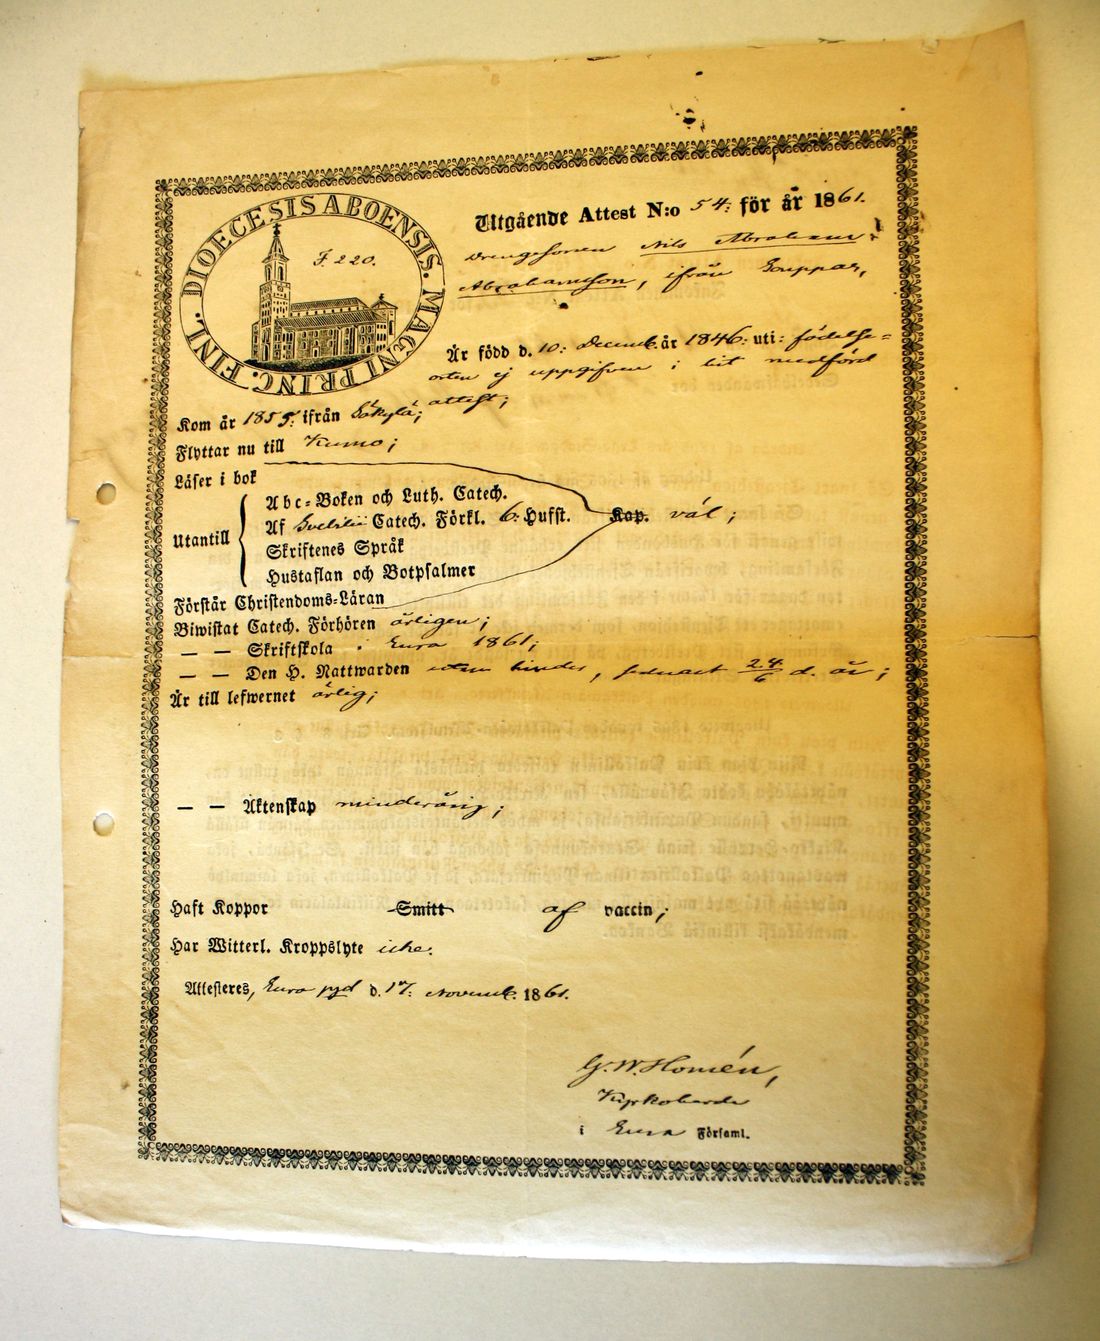 DIOECESIS ABOENSIS. MAGNI PRINC. FINL.
F. 220.
Utgående Attest N:o 54: för år 1861.
Drengsonen Nils Abraham
Abrahamsson, ifrån
Är född d. 10: Decemb. år 1846: uti: födelse=
orten ej uppgifven i hit medförd
attest;
Kom år 1855: ifrån Säkylä;
Flyttar nu till Kumo;
Läser i bok
Utantill
Abc=Boken och Luth. Catech.
Af Svebilii Catech. Förkl. 6: Hufst. Kap. väl;
Skriftenes Språk
Hustaflan och Botpsalmer
Förstår Christendoms=Läran
Biwistat Catech. Förhören årligen;
— — Skriftskola i Eura 1861;
— — Den H. Nattwarden utan hinder, senast 24/6 d. år;
Är till lefwernet ärlig;
— — Äktenskap minderårig;
Haft Koppor Smitt af vaccin;
Har Witterl. Kroppslyte icke.
Attesteres, Eura pgd d. 17: Novemb. 1861.
G. W. Homén,
Kyrkoherde
i Eura Församl.